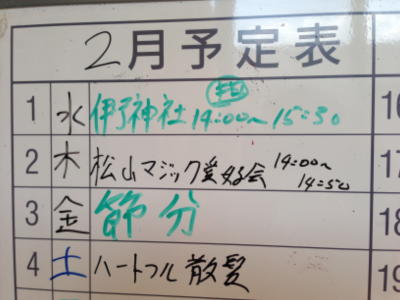 2月予定表
1 水 伊予神社 14:00~15:30
2 木 松山マジック愛好会 14:00~14:50
3 金 節分
4 土 ハートフル散髪